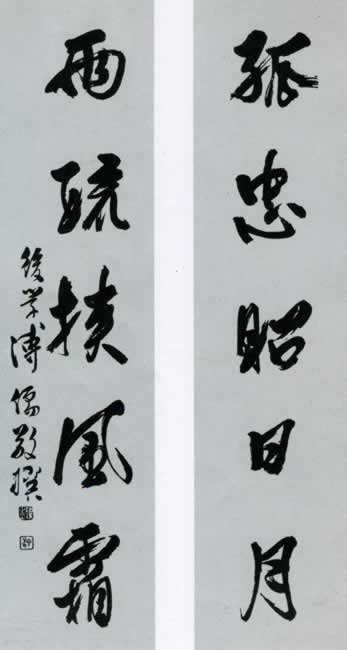 孤忠昭日月
两疏挟风霜
後学溥儒敬撰